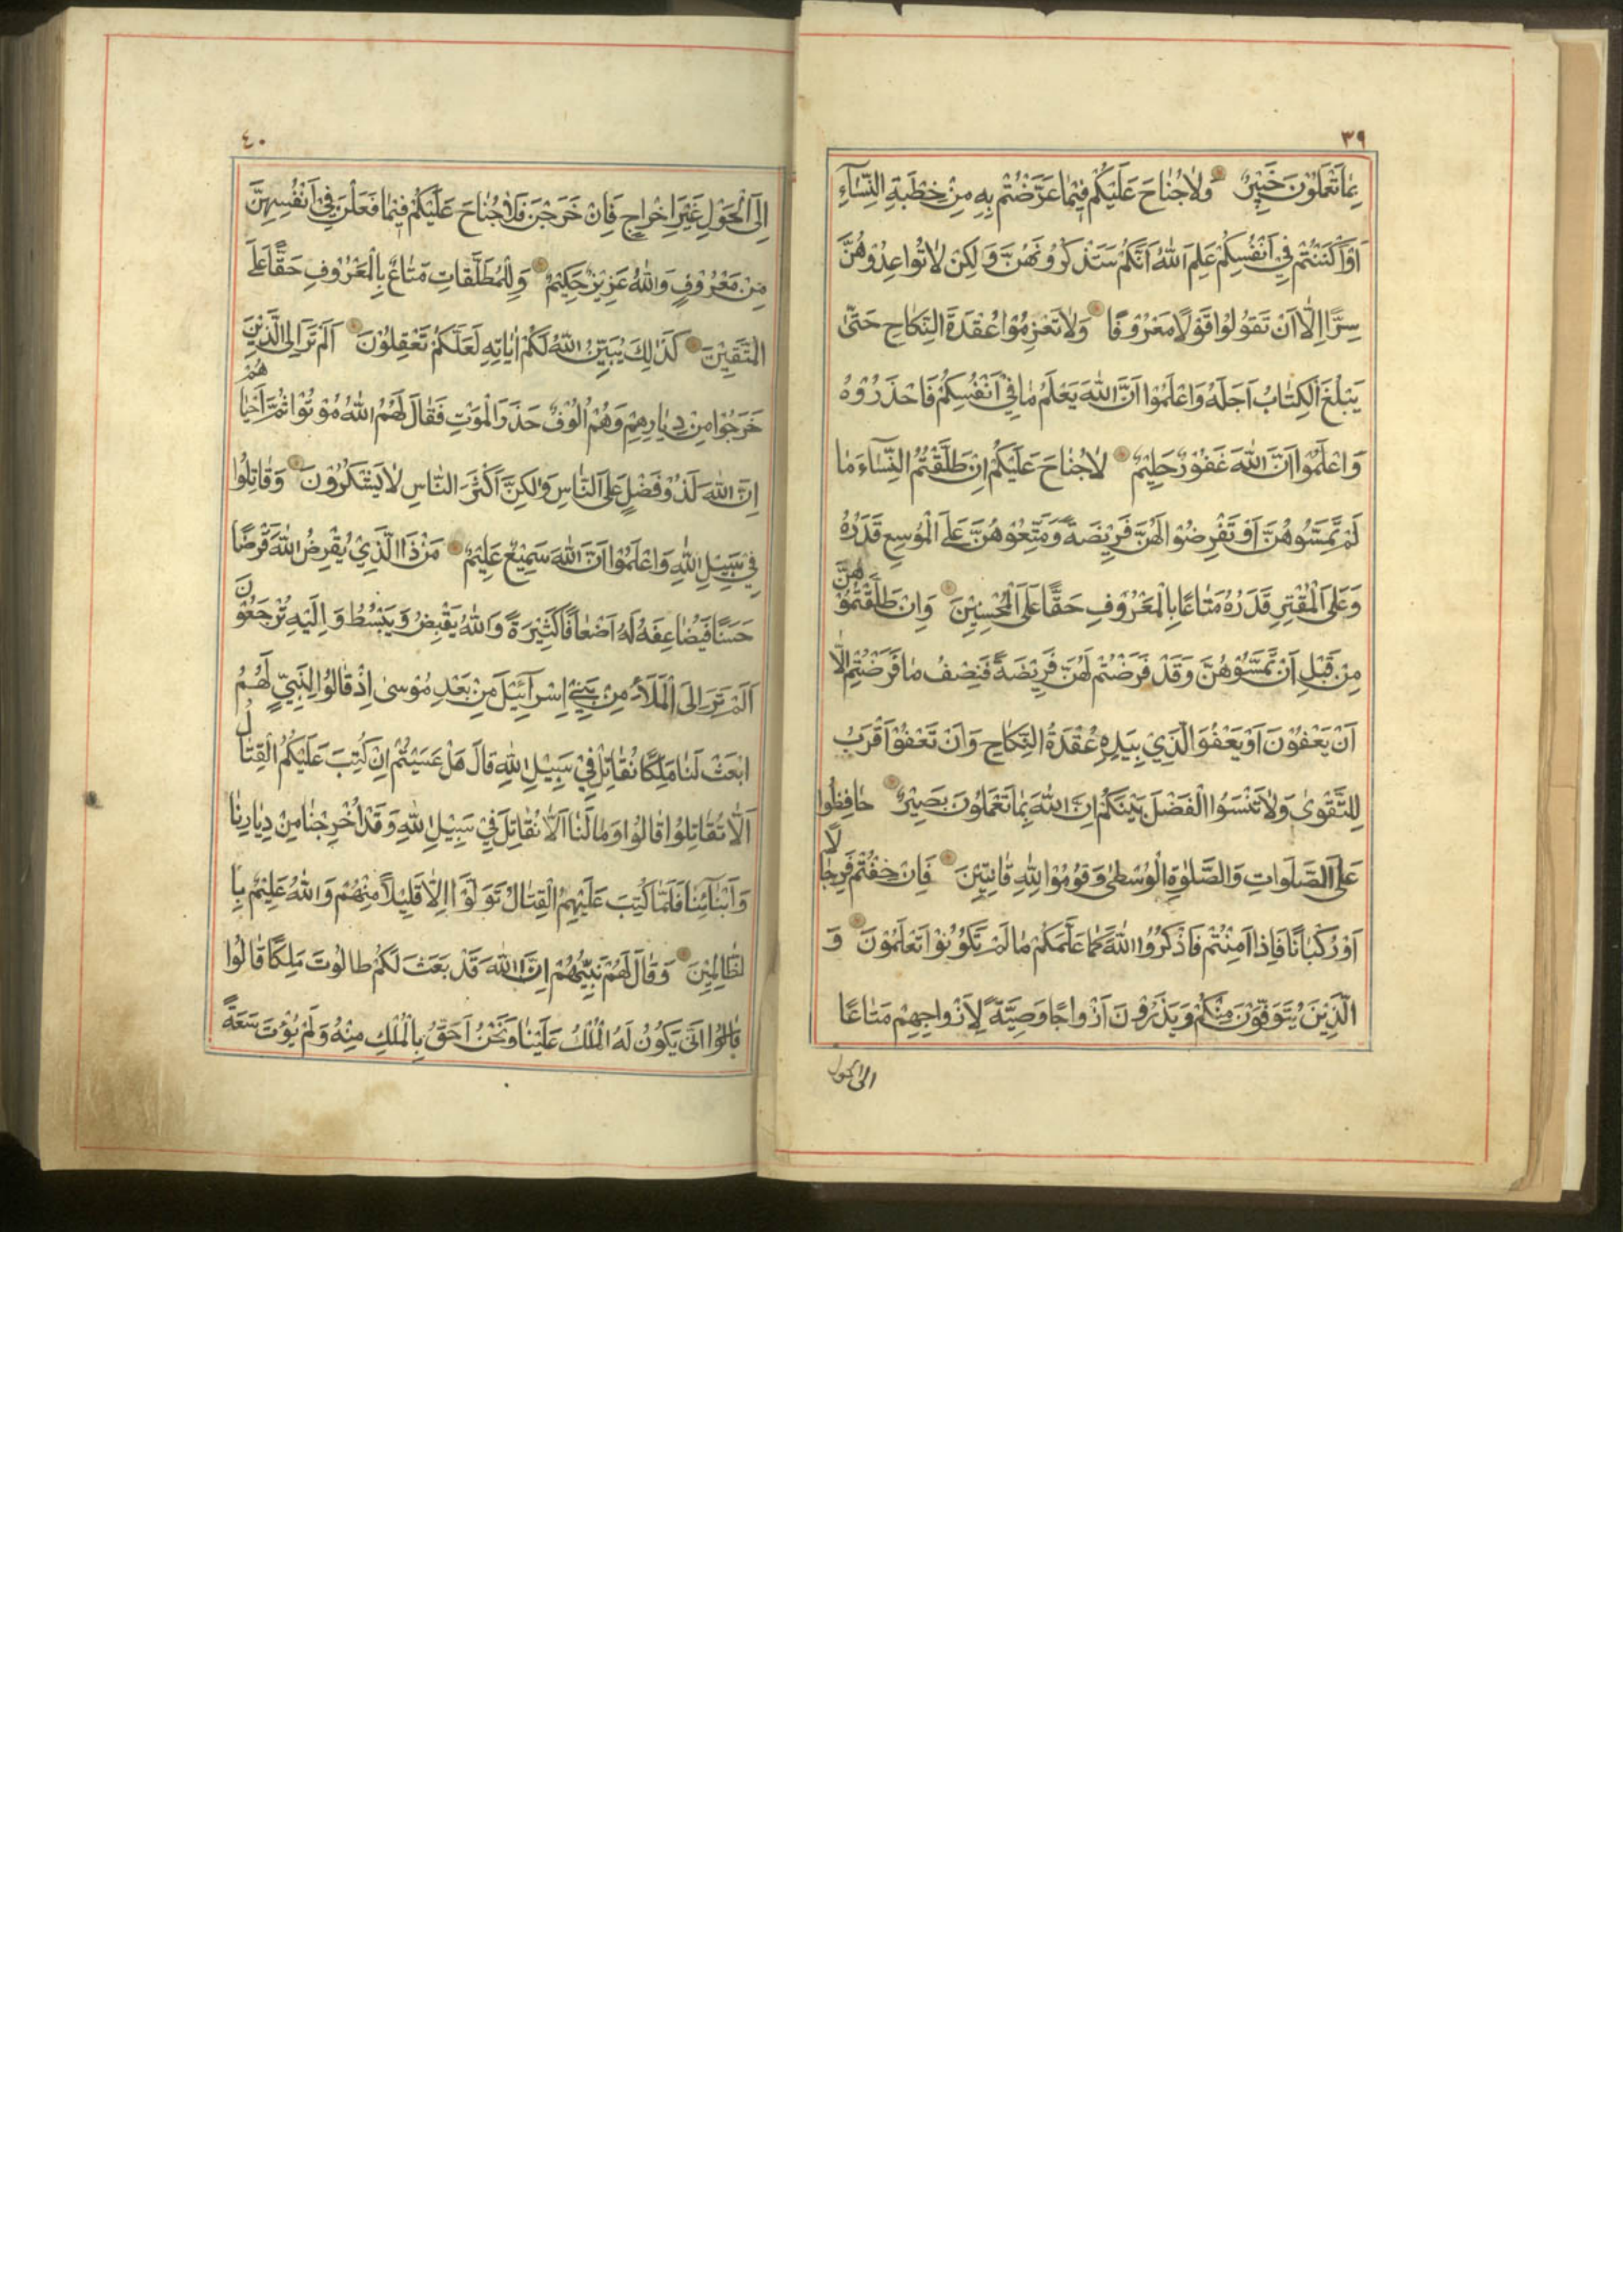 ٣٩
بِمَا تَعْمَلُوْنَ خَبِيْرٌ وَلَا جُنَاحَ عَلَيْكُمْ فِيْمَا عَرَّضْتُمْ بِهِ مِنْ خِطْبَةِ النِّسَآءِ
اَوْ اَكْنَنْتُمْ فِي اَنْفُسِكُمْ عَلِمَ اللهُ اَنَّكُمْ سَتَذْكُرُونَهُنَّ وَلٰكِنْ لَا تُوَاعِدُوْهُنَّ
سِرًّا اِلَّا اَنْ تَقُوْلُوْا قَوْلًا مَعْرُوْفًا وَلَا تَعْزِمُوْا عُقْدَةَ النِّكَاحِ حَتّٰى
يَبْلُغَ الْكِتَابُ اَجَلَهُ وَاعْلَمُوْا اَنَّ اللهَ يَعْلَمُ مَا فِيْ اَنْفُسِكُمْ فَاحْذَرُوْهُ
وَاعْلَمُوْا اَنَّ اللهَ غَفُوْرٌ حَلِيْمٌ لَا جُنَاحَ عَلَيْكُمْ اِنْ طَلَّقْتُمُ النِّسَآءَ مَا
لَمْ تَمَسُّوْهُنَّ اَوْ تَفْرِضُوْا لَهُنَّ فَرِيْضَةً وَمَتِّعُوْهُنَّ عَلَى الْمُوْسِعِ قَدَرُهُ
وَعَلَى الْمُقْتِرِ قَدَرُهُ مَتَاعًا بِالْمَعْرُوْفِ حَقًّا عَلَى الْمُحْسِنِيْنَ وَاِنْ طَلَّقْتُمُوْهُنَّ
مِنْ قَبْلِ اَنْ تَمَسُّوْهُنَّ وَقَدْ فَرَضْتُمْ لَهُنَّ فَرِيْضَةً فَنِصْفُ مَا فَرَضْتُمْ اِلَّا
اَنْ يَعْفُوْنَ اَوْ يَعْفُوَ الَّذِيْ بِيَدِهِ عُقْدَةُ النِّكَاحِ وَاَنْ تَعْفُوْا اَقْرَبُ
لِلتَّقْوٰى وَلَا تَنْسَوُا الْفَضْلَ بَيْنَكُمْ اِنَّ اللهَ بِمَا تَعْمَلُوْنَ بَصِيْرٌ حَافِظُوْا
عَلَى الصَّلَوَاتِ وَالصَّلٰوةِ الْوُسْطٰى وَقُوْمُوْا لِلّٰهِ قَانِتِيْنَ فَاِنْ خِفْتُمْ فَرِجَالًا
اَوْ رُكْبَانًا فَاِذَا اَمِنْتُمْ فَاذْكُرُوا اللهَ كَمَا عَلَّمَكُمْ مَا لَمْ تَكُوْنُوْا تَعْلَمُوْنَ وَ
الَّذِيْنَ يُتَوَفَّوْنَ مِنْكُمْ وَيَذَرُوْنَ اَزْوَاجًا وَصِيَّةً لِاَزْوَاجِهِمْ مَتَاعًا
الى الحول
٤٠
اِلَى الْحَوْلِ غَيْرَ اِخْرَاجٍ فَاِنْ خَرَجْنَ فَلَا جُنَاحَ عَلَيْكُمْ فِيْمَا فَعَلْنَ فِيْ اَنْفُسِهِنَّ
مِنْ مَعْرُوْفٍ وَاللهُ عَزِيْزٌ حَكِيْمٌ وَلِلْمُطَلَّقَاتِ مَتَاعٌ بِالْمَعْرُوْفِ حَقًّا عَلَى
الْمُتَّقِيْنَ كَذٰلِكَ يُبَيِّنُ اللهُ لَكُمْ اٰيَاتِهِ لَعَلَّكُمْ تَعْقِلُوْنَ اَلَمْ تَرَ اِلَى الَّذِيْنَ
خَرَجُوْا مِنْ دِيَارِهِمْ وَهُمْ اُلُوْفٌ حَذَرَ الْمَوْتِ فَقَالَ لَهُمُ اللهُ مُوْتُوْا ثُمَّ اَحْيَاهُمْ
اِنَّ اللهَ لَذُوْ فَضْلٍ عَلَى النَّاسِ وَلٰكِنَّ اَكْثَرَ النَّاسِ لَا يَشْكُرُوْنَ وَقَاتِلُوْا
فِيْ سَبِيْلِ اللهِ وَاعْلَمُوْا اَنَّ اللهَ سَمِيْعٌ عَلِيْمٌ مَنْ ذَا الَّذِيْ يُقْرِضُ اللهَ قَرْضًا
حَسَنًا فَيُضَاعِفَهُ لَهُ اَضْعَافًا كَثِيْرَةً وَاللهُ يَقْبِضُ وَيَبْسُطُ وَاِلَيْهِ تُرْجَعُوْنَ
اَلَمْ تَرَ اِلَى الْمَلَأِ مِنْ بَنِيْ اِسْرَآئِيْلَ مِنْ بَعْدِ مُوْسٰى اِذْ قَالُوْا لِنَبِيٍّ لَهُمُ
ابْعَثْ لَنَا مَلِكًا نُقَاتِلْ فِيْ سَبِيْلِ اللهِ قَالَ هَلْ عَسَيْتُمْ اِنْ كُتِبَ عَلَيْكُمُ الْقِتَالُ
اَلَّا تُقَاتِلُوْا قَالُوْا وَمَا لَنَا اَلَّا نُقَاتِلَ فِيْ سَبِيْلِ اللهِ وَقَدْ اُخْرِجْنَا مِنْ دِيَارِنَا
وَاَبْنَآئِنَا فَلَمَّا كُتِبَ عَلَيْهِمُ الْقِتَالُ تَوَلَّوْا اِلَّا قَلِيْلًا مِنْهُمْ وَاللهُ عَلِيْمٌ بِا
لظَّالِمِيْنَ وَقَالَ لَهُمْ نَبِيُّهُمْ اِنَّ اللهَ قَدْ بَعَثَ لَكُمْ طَالُوْتَ مَلِكًا قَالُوْا
قَالُوْا اَنّٰى يَكُوْنُ لَهُ الْمُلْكُ عَلَيْنَا وَنَحْنُ اَحَقُّ بِالْمُلْكِ مِنْهُ وَلَمْ يُؤْتَ سَعَةً